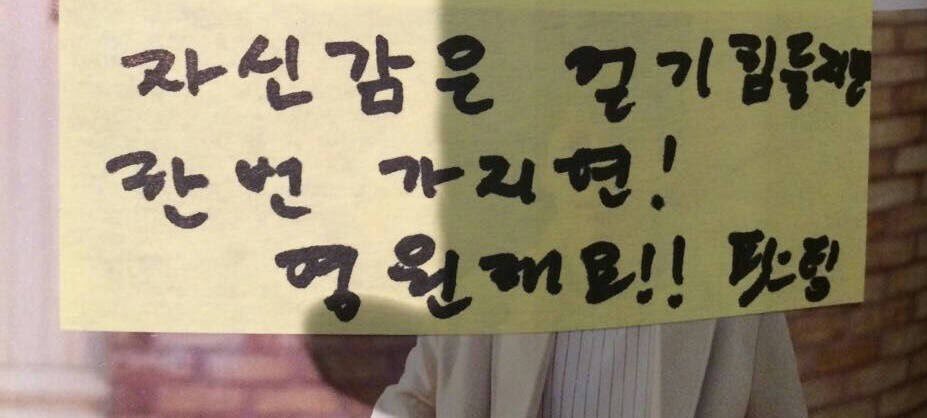 자신감은 걷기힘들지만
한번 가지현!
영원해요!! 팟팅